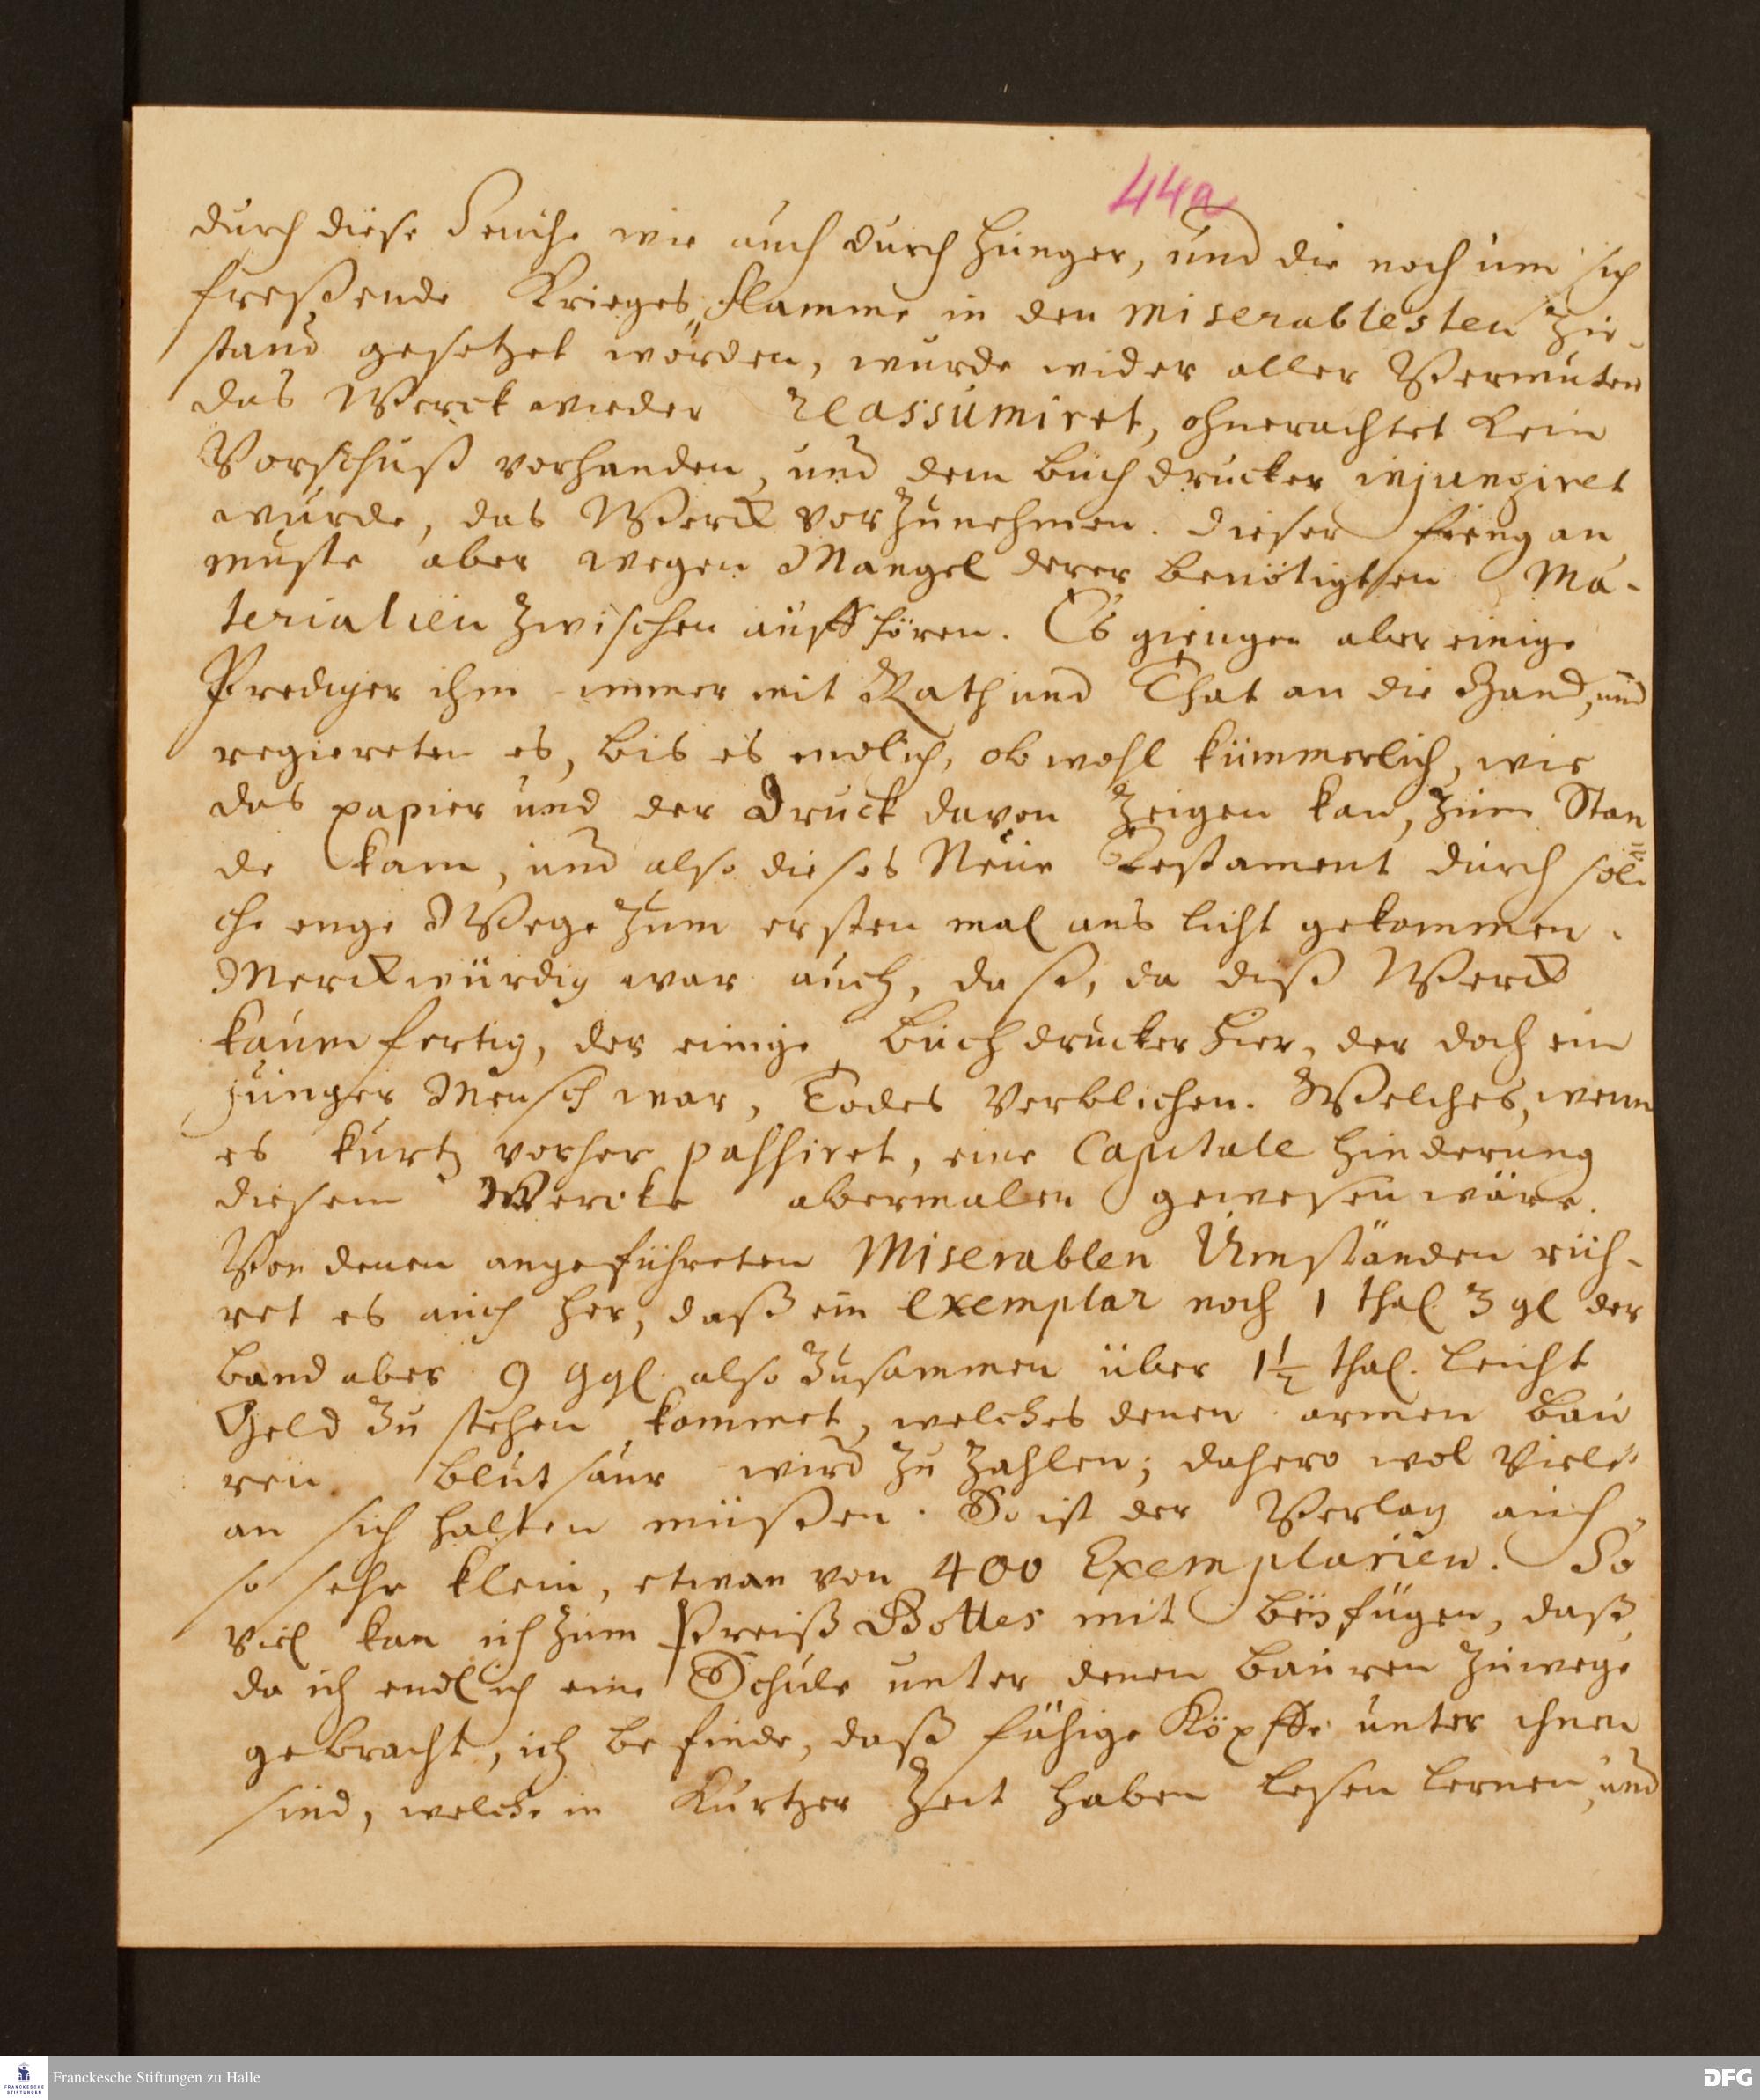 44a
durch diese Seuche wie auch durch Hunger, und die noch um sich
freßende Krieges Flamme in den miserablesten Zu-
stand gesetzet worden, wurde wider aller Vermuten
das Werck wieder reassumiret, ohnerachtet kein
Vorschuß vorhanden, und dem Buchdrucker injungiret
wurde, das Werck vorzunehmen. Dieser fieng an
muste aber wegen Mangel derer benötigtsten Ma-
terialien zwischen auffhören. Es giengen aber einige
Prediger ihm immer mit Rath und That an die Hand, und
regiereten es, bis es endlich, obwohl kümmerlich, wie
das papier und der Druck davon zeigen kan, zum Stan
de kam, und also dieses Neue Testament durch sol-
che enge Wege zum ersten mal ans licht gekommen.
Merckwürdig war auch, daß, da diß Werck
kaum fertig, der einige Buchdrucker hier, der doch ein
junger Mensch war, Todes verblichen. Welches, wenn
es kurtz vorher passiret, eine Capitale Hinderung
diesem Wercke abermalen gewesen wäre.
Von denen angeführeten Miserablen Umständen rüh-
ret es auch her, daß ein Exemplar noch 1 thal. 3 gl der
band aber 9 ggl. also zusammen über 1½ thal. leicht
Geld zu stehen kommet, welches denen armen Bau
ren blutsaur wird zu zahlen; dahero wol viele
an sich halten müßen. So ist der Verlag auch
so sehr klein, etwan von 400 Exemplarien. So
viel kan ich zum Preiß Gottes mit beyfügen, daß,
da ich endlich eine Schule unter denen Bauren zuwege
gebracht, ich befinde, daß fähige Köpffe unter ihnen
sind, welche in Kurtzer Zeit haben lesen lernen, und
Franckesche Stiftungen zu Halle
FRANCKESCHE STIFTUNGEN
DFG